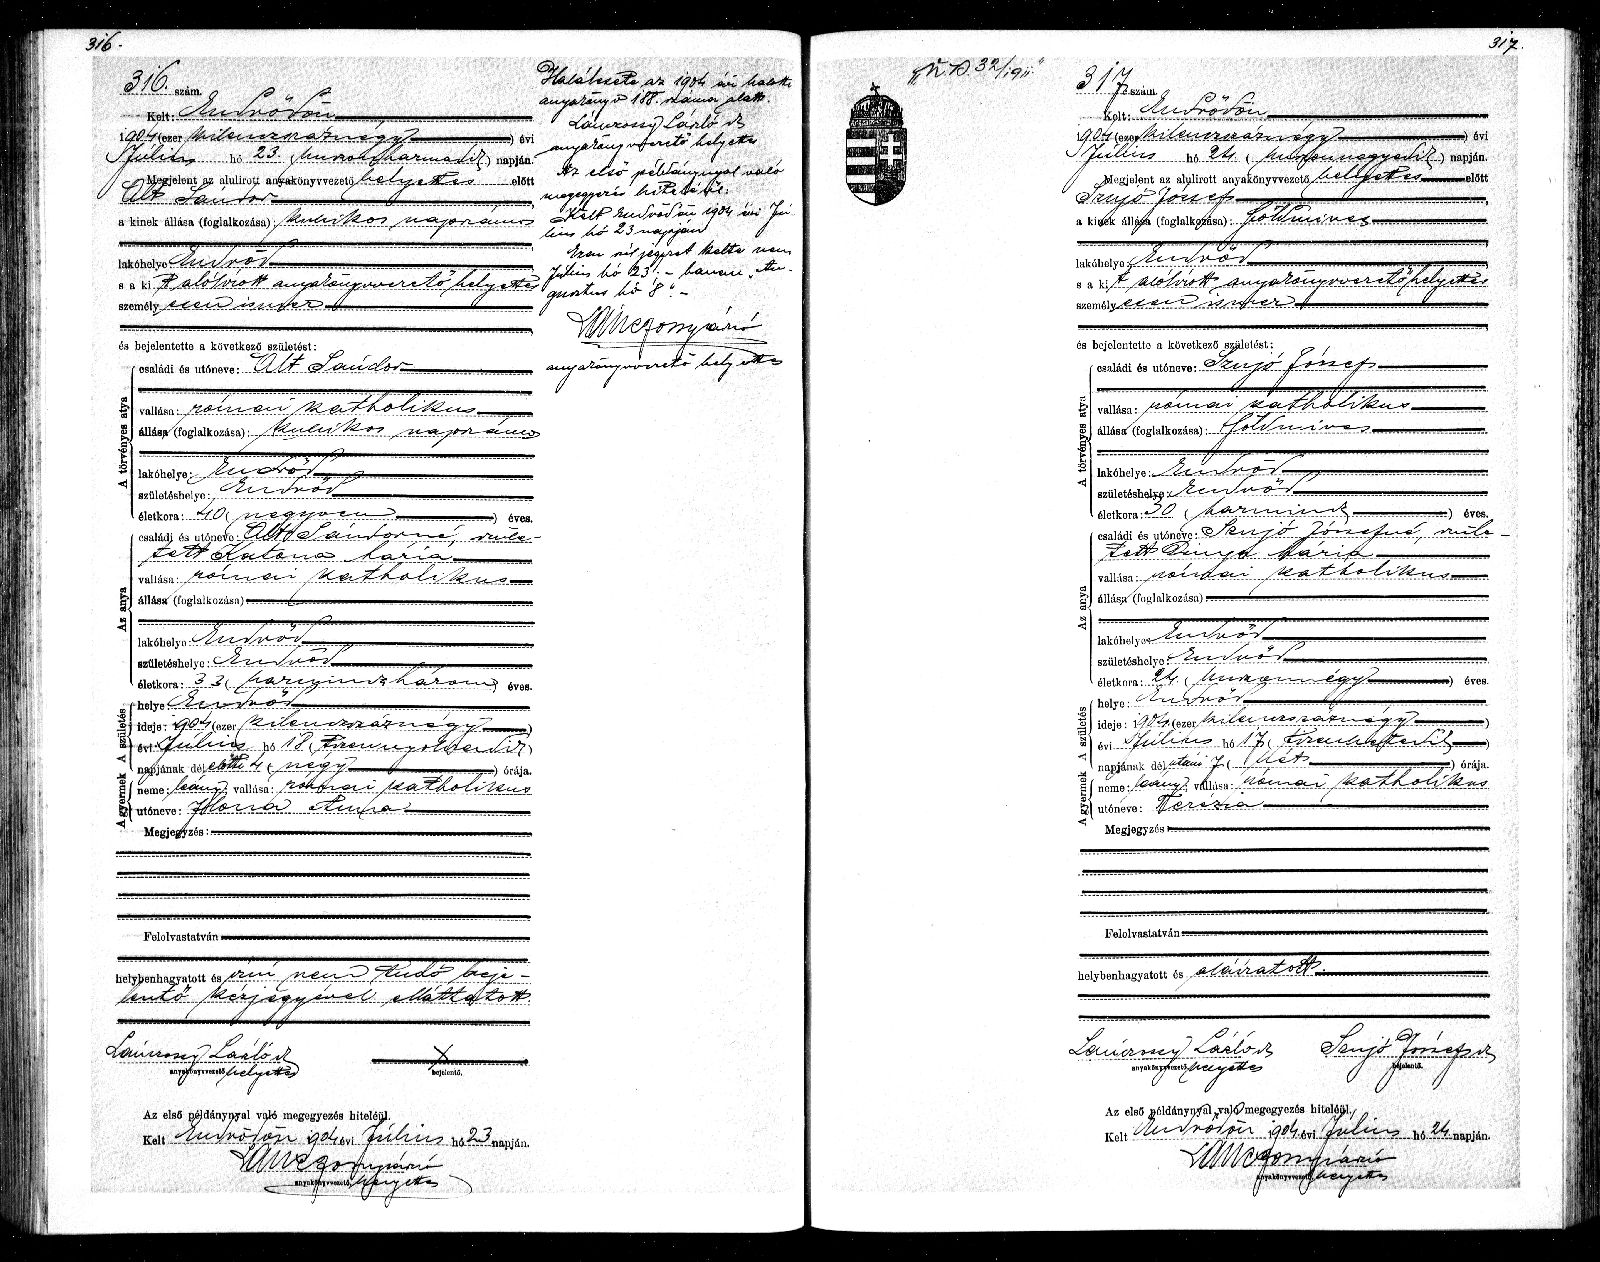 316.
316. szám.
Kelt: Endrődön
1904 (ezer kilenczszáznégy) évi
Július hó 23. (huszonharmadik) napján.
Megjelent az alulirott anyakönyvvezető helyettes előtt
Alt Sándor
a kinek állása (foglalkozása): kubikos napszámos
lakóhelye: Endrőd
s a kit alólirott anyakönyvvezető helyettes
személyesen ismer
és bejelentette a következő születést:
A törvényes atya
családi és utóneve: Alt Sándor
vallása: római katholikus
állása (foglalkozása): kubikos napszámos
lakóhelye: Endrőd
születéshelye: Endrőd
életkora: 40 (negyven) éves.
Az anya
családi és utóneve: Alt Sándorné, szüle-
tett Katona Mária
vallása: római katholikus
állása (foglalkozása)
lakóhelye: Endrőd
születéshelye: Endrőd
életkora: 33 (harminczhárom) éves.
A gyermek A születés
helye Endrőd
ideje: 1904 (ezer kilenczszáznégy)
évi Július hó 18 (tizennyolczadik)
napjának délelőtti 4 (négy) órája.
neme: leány, vallása: római katholikus
utóneve: Ilona Anna
Megjegyzés:
Felolvastatván
helybenhagyatott és írni nem tudó beje-
lentő kézjegyével elláttatott.
Lánczossy László sk
anyakönyvvezető helyettes
X
bejelentő.
Az első példánynyal való megegyezés hiteléül.
Kelt Endrődön 1904 évi Július hó 23 napján.
anyakönyvvezető helyettes
Halálesete az 1904 évi halotti
anyakönyv 188. száma alatt.
Lánczossy László sk
anyakönyvvezető helyettes
Az első példánynyal való
megegyezés hiteléül.
Kelt Endrődön 1904 évi Jú-
lius hó 23 napján
Ezen utójegyzet kelte nem
Július hó 23. – hanem „Au-
gusztus hó 8". –
anyakönyvvezető helyettes
317.
„N. D. 32/1911"
317. szám.
Kelt: Endrődön
1904 (ezer kilenczszáznégy) évi
Július hó 24. (huszonnegyedik) napján.
Megjelent az alulirott anyakönyvvezető helyettes előtt
Szujó József
a kinek állása (foglalkozása): földmives
lakóhelye: Endrőd
s a kit alólirott anyakönyvvezető helyettes
személyesen ismer
és bejelentette a következő születést:
A törvényes atya
családi és utóneve: Szujó József
vallása: római katholikus
állása (foglalkozása): földmives
lakóhelye: Endrőd
születéshelye: Endrőd
életkora: 30 (harmincz) éves.
Az anya
családi és utóneve: Szujó Józsefné, szüle-
tett Dinya Mária
vallása: római katholikus
állása (foglalkozása):
lakóhelye: Endrőd
születéshelye: Endrőd
életkora: 24. (huszonnégy) éves.
A gyermek A születés
helye: Endrőd
ideje: 1904 (ezer kilenczszáznégy)
évi Július hó 17 (tizenhetedik)
napjának délutáni 7 (hét) órája.
neme: leány, vallása: római katholikus
utóneve: Terézia
Megjegyzés
Felolvastatván
helybenhagyatott és aláiratott.
Lánczossy László sk
anyakönyvvezető helyettes
Szujó József sk
bejelentő.
Az első példánynyal való megegyezés hiteléül.
Kelt Endrődön 1904 évi Július hó 24 napján.
anyakönyvvezető helyettes